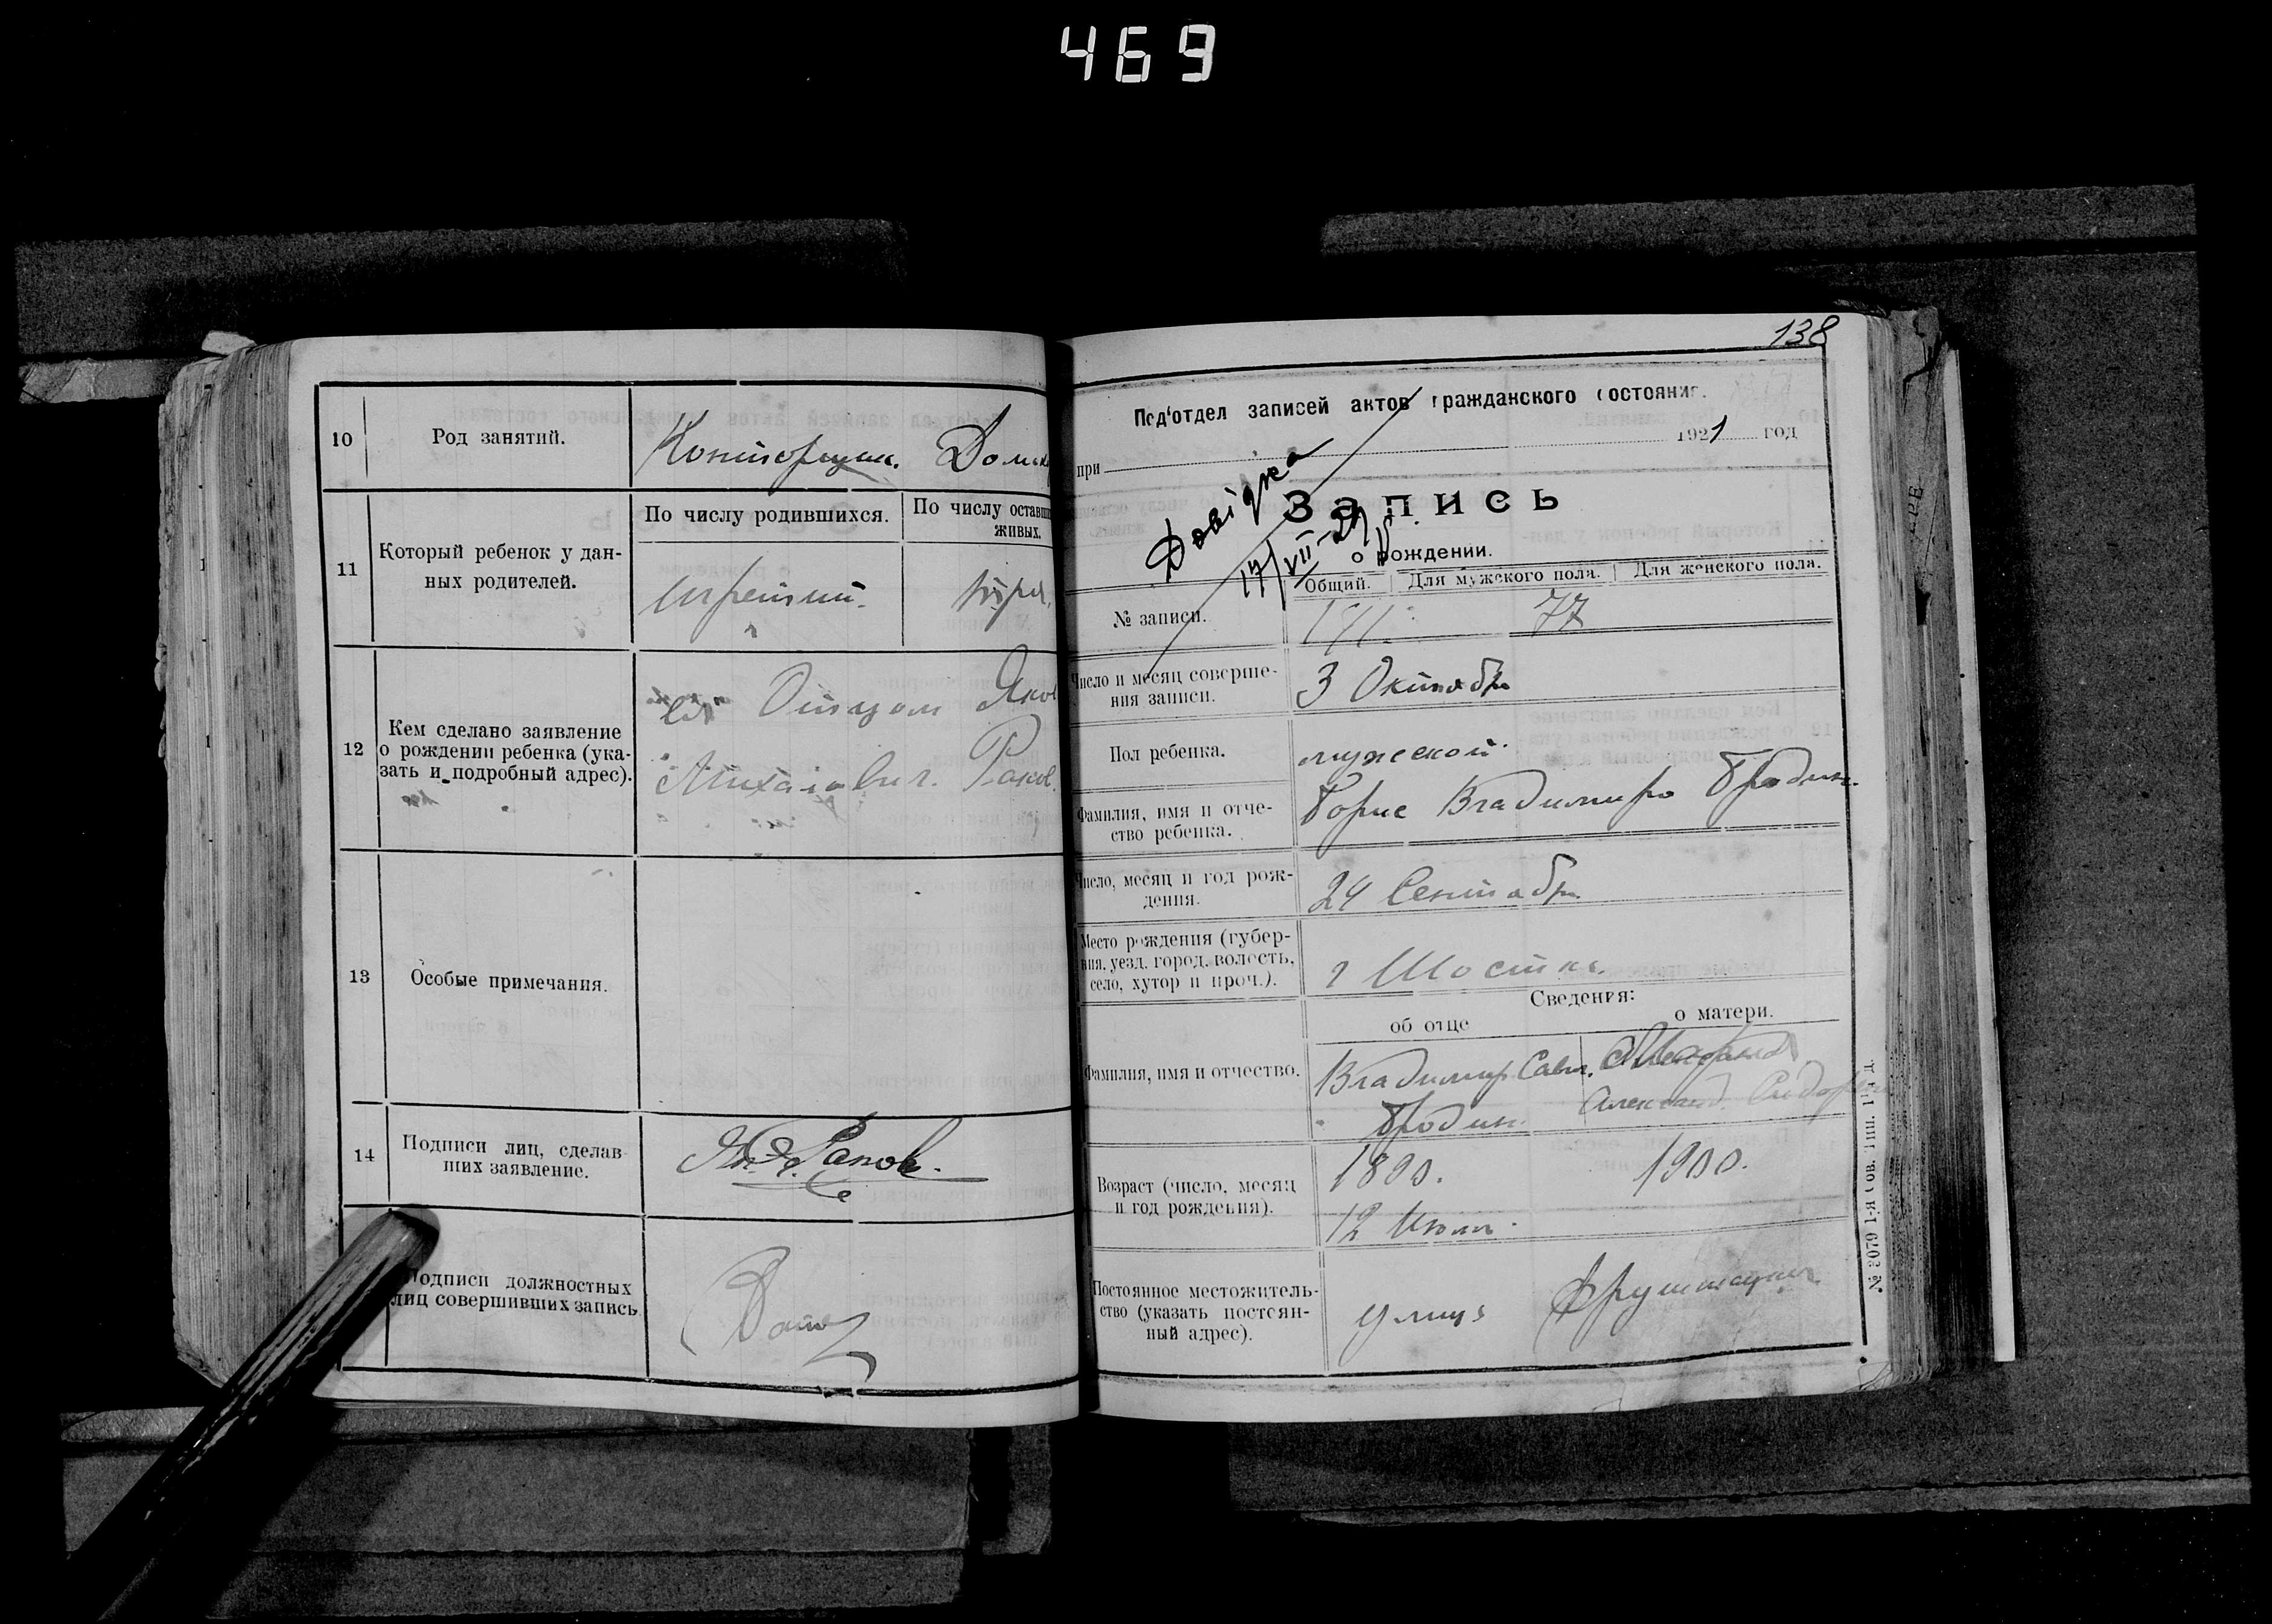 469
10
Род занятий.
Конторщик. Домаш
11
Который ребенок у дан-
ных родителей.
По числу родившихся.
По числу оставш
живых.
12
Кем сделано заявление
о рождении ребенка (ука-
зать и подробный адрес).
Отцом Яков
Михайлович. Раков.
13
Особые примечания.
14
Подписи лиц, сделав-
ших заявление.
Раков.
Подписи должностных
лиц совершивших запись
138
Под'отдел записей актов гражданского состояния.
при 1921 год
Довідка
17/VII-29
Запись
о рождении.
Общий. Для мужского пола. Для женского пола.
№ записи.
171. 77
Число и месяц соверше-
ния записи.
3 Октября
Пол ребенка.
мужской.
Фамилия, имя и отче-
ство ребенка.
Борис Владимиро Бродин.
Число, месяц и год рож-
дения.
24 Сентября
Место рождения (губер-
ния, уезд, город, волость,
село, хутор и проч.).
г Шостка.
Сведения:
об отце
о матери.
Фамилия, имя и отчество.
Владимир Сав.
Бродин.
Александ. Сидор
Возраст (число, месяц
и год рождения).
1890. 1900.
12 Июля.
Постоянное местожитель-
ство (указать постоян-
ный адрес).
улица
№ 3079 1-я Сов. Тип.